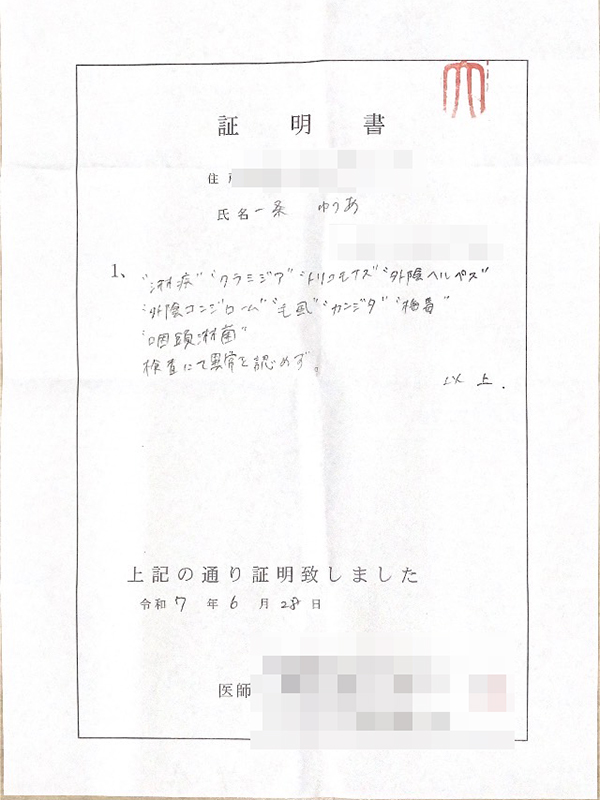 証明書
住
氏名 一条 ゆりあ
1、
"淋疾" "クラミジア" "トリコモナス" "外陰ヘルペス"
"外陰コンジローム" "毛虱" "カンジタ" "梅毒"
"咽頭淋菌"
検査にて異常を認めず。
以上.
上記の通り証明致しました
令和 7 年 6 月 28 日
医師